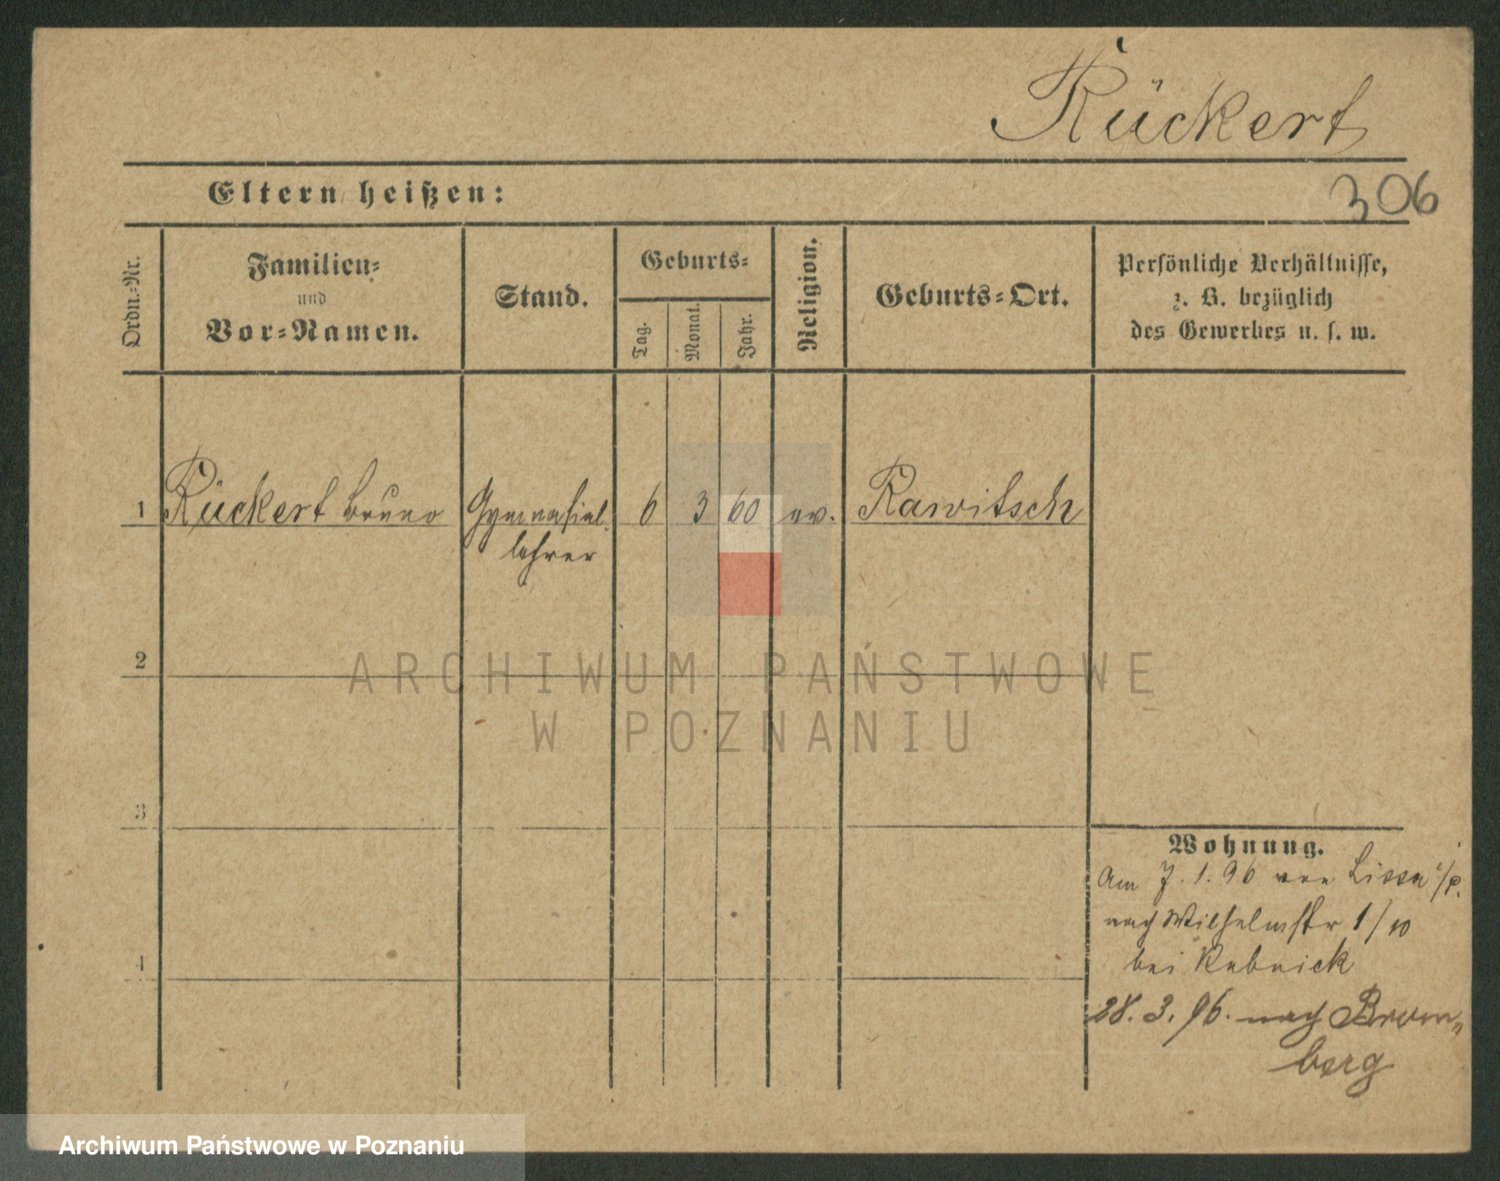 Rückert
Eltern heißen:
306
Ordn.-Nr.
Familien-
und
Vor-Namen.
Stand.
Geburts-
Tag.
Monat.
Jahr.
Religion.
Geburts-Ort.
Persönliche Verhältnisse,
z. B. bezüglich
des Gewerbes u. s. w.
1 Rückert Bruno Gymnasial 6 3 60 ev. Rawitsch
lehrer
2
3
4
Wohnung.
Am 7. 1. 96 von Lissa i/p.
nach Wilhelmstr 1/10
bei
28. 3. 96. nach Brom-
berg
ARCHIWUM PAŃSTWOWE
W POZNANIU
Archiwum Państwowe w Poznaniu